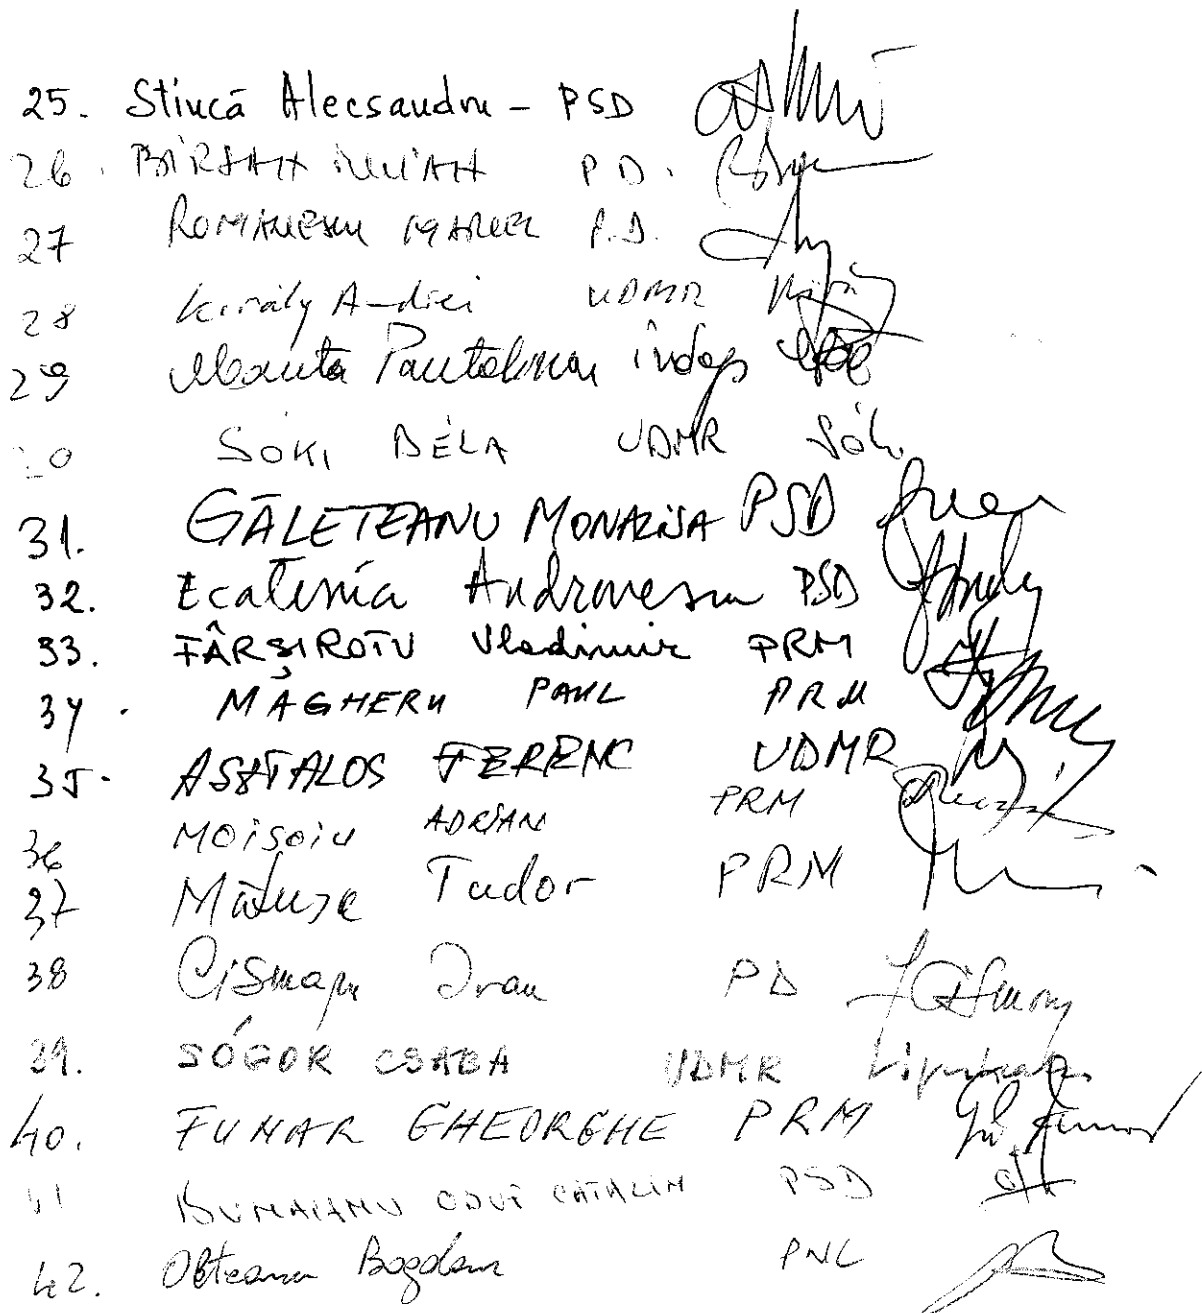 25. Stiucă Alecsandru - PSD
26. BÎRSAN IULIAN P.D.
27 ROMANESCU MARCEL P.D.
28 Király Andrei UDMR
29 Manta Pantelimon indep
30 SÓKI BÉLA UDMR Sóki
31. GĂLETEANU MONALISA PSD
32. Ecaterina Andronescu PSD
33. FÂRȘIROTU Vladimir PRM
34. MAGHERU PAUL PRM
35. ASZTALOS FERENC UDMR
36 MOISOIU ADRIAN PRM
37 Mătușa Tudor PRM
38 Cismaru Ivan PD
39. SÓGOR CSABA UDMR
40. FUNAR GHEORGHE PRM Gh. Funar
41 CĂTĂLIN PSD
42. Olteanu Bogdan PNL